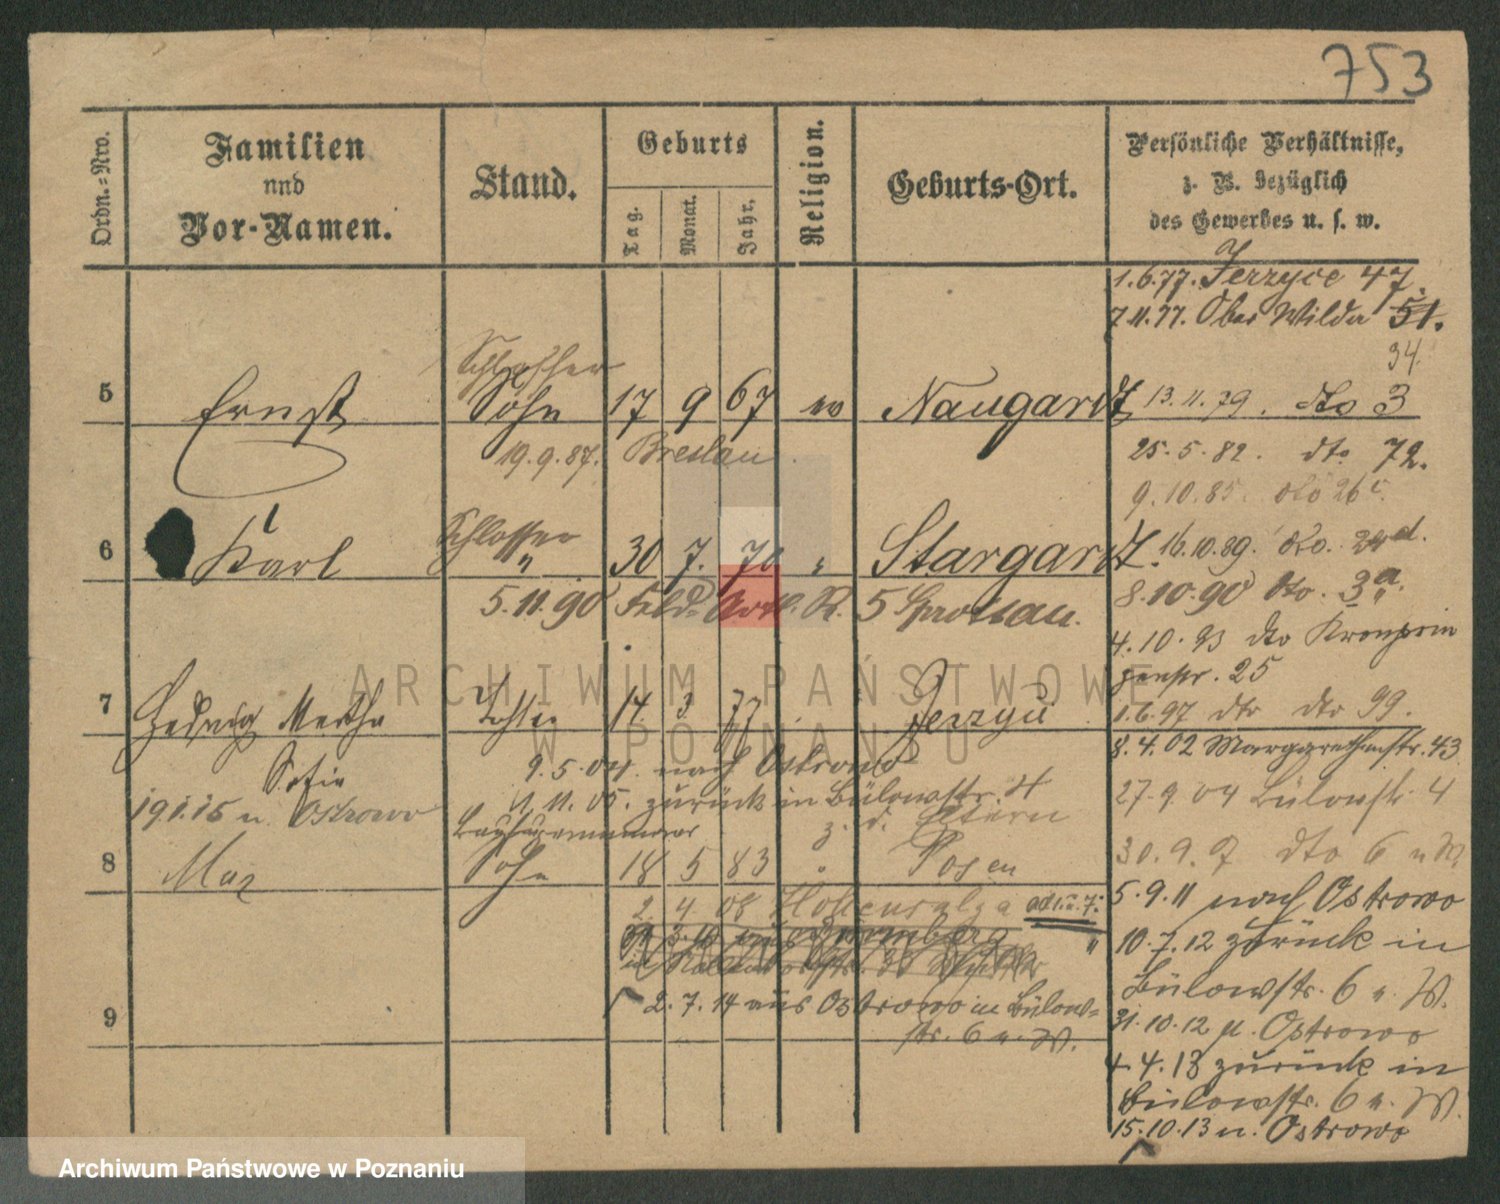 753
Ordn.-Nro.
Familien
und
Vor-Namen.
Stand.
Geburts
Tag.
Monat.
Jahr.
Religion.
Geburts-Ort.
Persönliche Verhältnisse,
z. B. bezüglich
des Gewerbes u. s. w.
1.6.77. Jerzyce 47.
7.11.77. Ober Wilda 51.
34.
Schlosser
5 Ernst Sohn 17 9 67 ev Naugardt 13.11.79. dto 3
19.9.87. Breslau.
25.5.82. dto 72.
9.10.85. dto 26
6 Karl Schlosser " 30 7. 70 " Stargardt. 16.10.89. dto.
5.11.90 Feld Artl. R. 5 Sprottau.
8.10.90 dto. 3a.
4.10.93 dto Kronprin
zenstr. 25
7 Hedwig Martha Tochter 14. 3 77 Jerzyce 1.6.97 dto dto 99.
Sofie
9.5.04. nach Ostrowo
8.4.02 Margarethenstr. 43
1.11.05. zurück in Bülowstr. 4
z. d. Eltern
27.9 04 Bülowstr. 4
19 1.15 n. Ostrowo
8 Max Sohn 18 5 83 " Posen
30.9.07 dto 6
2. 4 08 Hohensalza ad 1. u. 7.
5.9.11 nach Ostrowo
10.7.12 zurück in
Bülowstr. 6 n. W.
9
2.7.14 aus Ostrowo in Bülow=
str. 6 n. W.
31.10.12 n. Ostrowo
4.4.13 zurück in
Bülowstr. 6 n. W.
15.10.13 n. Ostrowo
ARCHIWUM PAŃSTWOWE
W POZNANIU
Archiwum Państwowe w Poznaniu